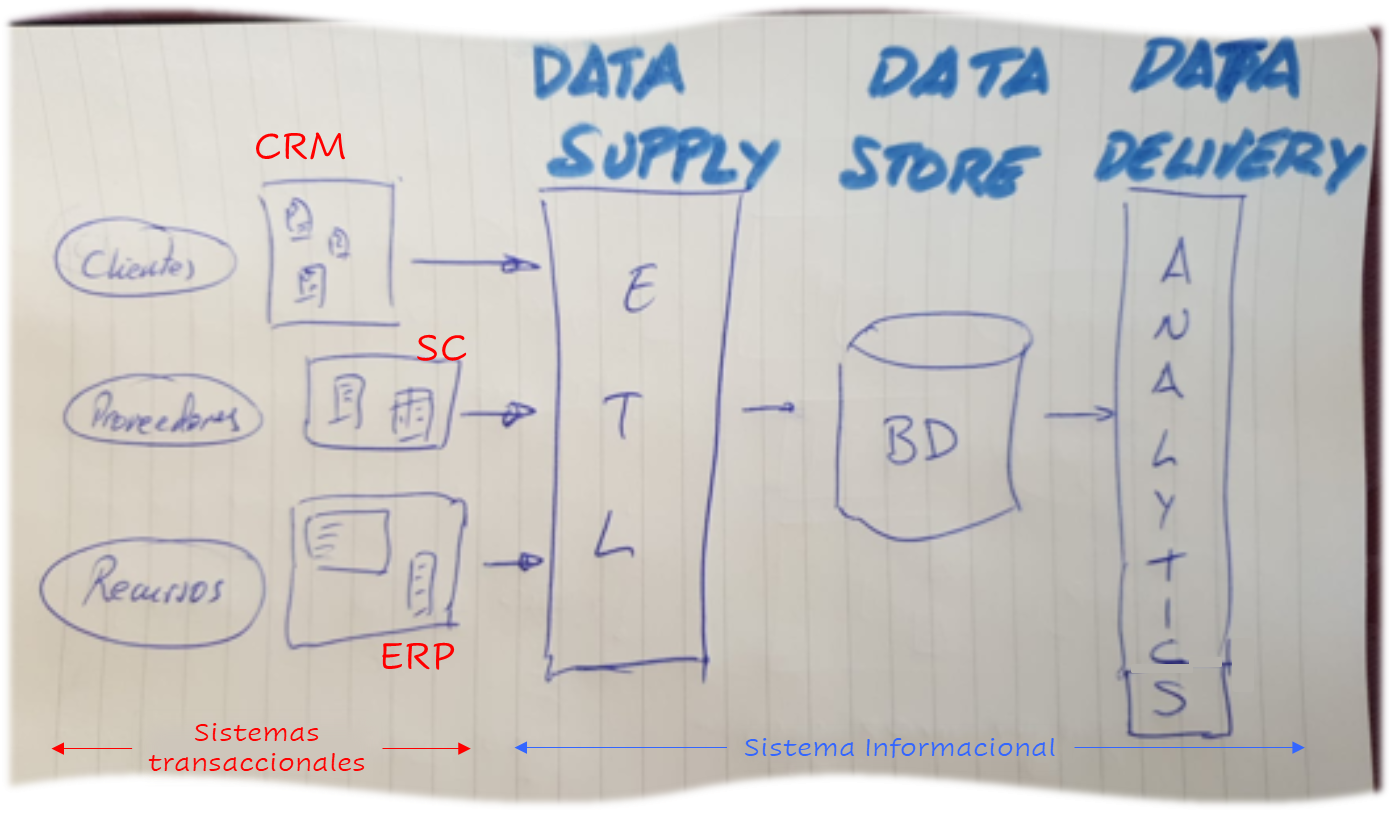 DATA
SUPPLY
DATA
STORE
DATA
DELIVERY
CRM
Clientes
SC
Proveedores
ERP
Recursos
E
T
L
BD
A
N
A
L
Y
T
I
C
S
Sistemas
transaccionales
Sistema Informacional